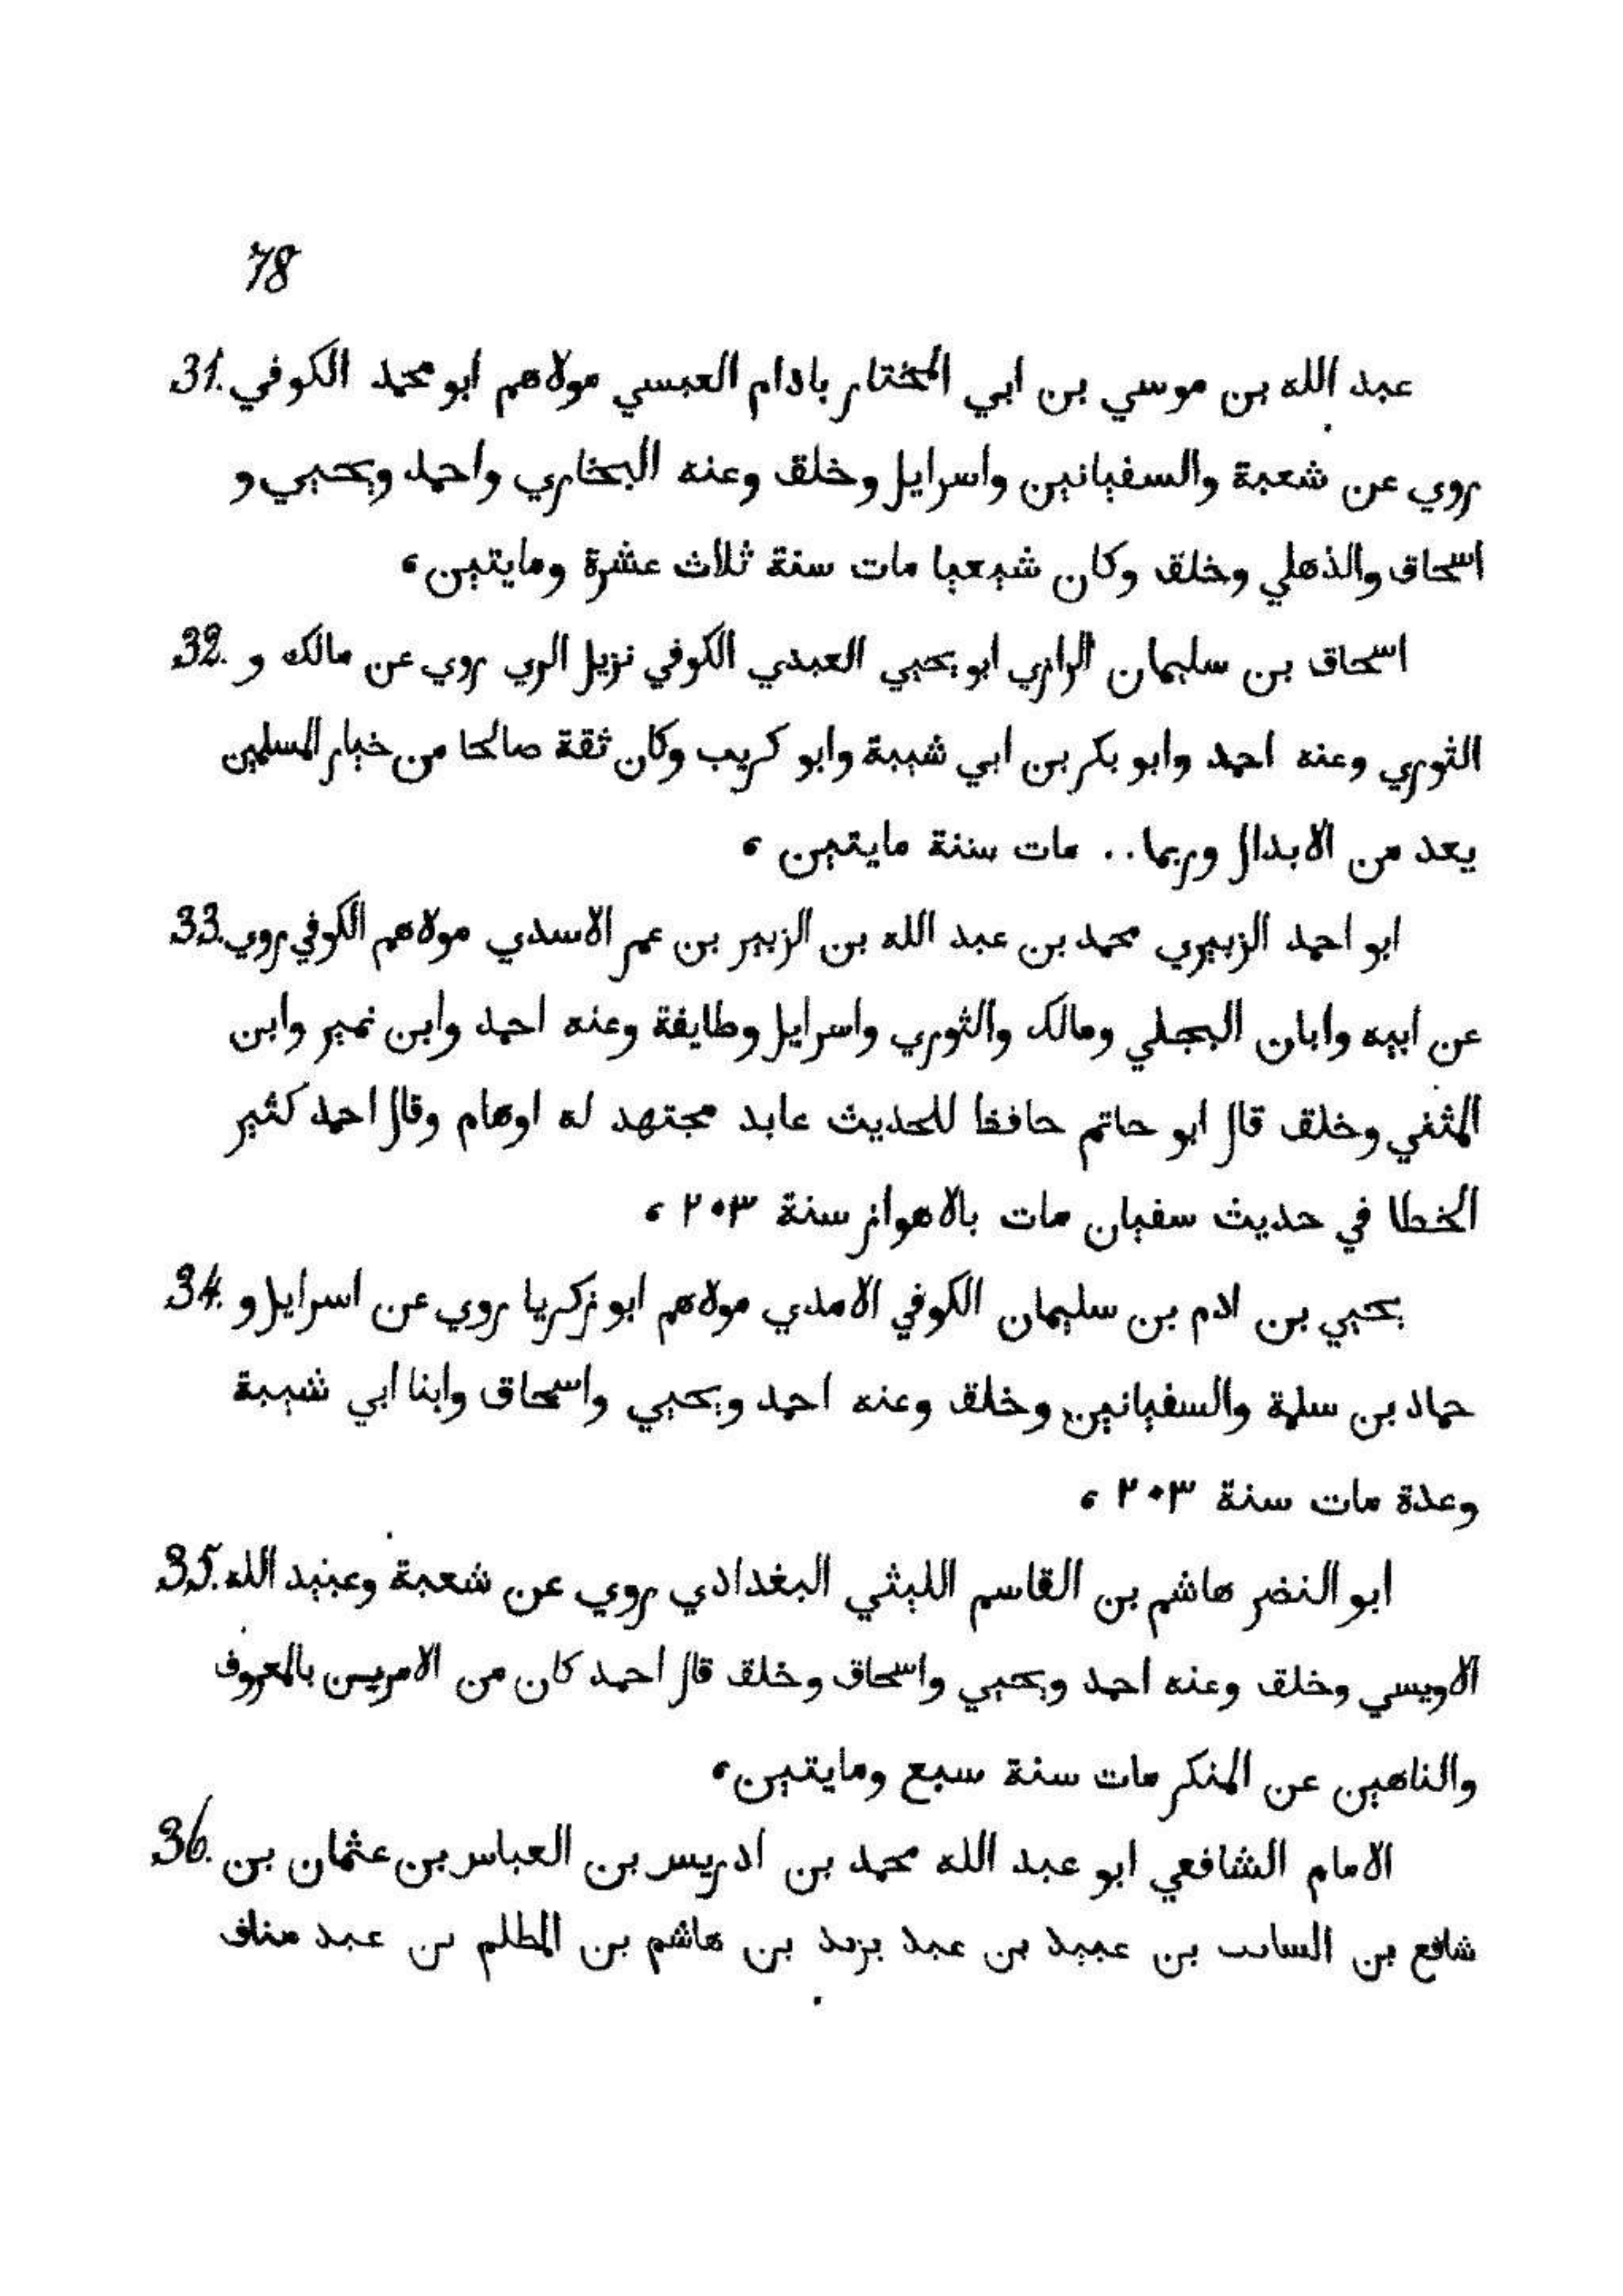 78
31. عبد الله بن موسي بن ابي المختار بادام العبسي مولاهم ابو محمد الكوفي
روي عن شعبة والسفيانين واسرايل وخلق وعنه البخاري واحمد ويحيي و
اسحاق والذهلي وخلق وكان شيعيا مات سنة ثلاث عشرة ومايتين ،
32. اسحاق بن سليمان الرازي ابو يحيي العبدي الكوفي نزيل الري روي عن مالك و
الثوري وعنه احمد وابو بكر بن ابي شيبة وابو كريب وكان ثقة صالحا من خيار المسلمين
يعد من الابدال وربما .. مات سنة مايتين ،
33. ابو احمد الزبيري محمد بن عبد الله بن الزبير بن عمر الاسدي مولاهم الكوفي روي
عن ابيه وابان البجلي ومالك والثوري واسرايل وطايفة وعنه احمد وابن نمير وابن
المثني وخلق قال ابو حاتم حافظا للحديث عابد مجتهد له اوهام وقال احمد كثير
الخطا في حديث سفيان مات بالاهواز سنة ٢٠٣ ،
34. يحيي بن ادم بن سليمان الكوفي الامدي مولاهم ابو زكريا روي عن اسرايل و
حماد بن سلمة والسفيانين وخلق وعنه احمد ويحيي واسحاق وابنا ابي شيبة
وعدة مات سنة ٢٠٣ ،
35. ابو النضر هاشم بن القاسم الليثي البغدادي روي عن شعبة وعبيد الله
الاويسي وخلق وعنه احمد ويحيي واسحاق وخلق قال احمد كان من الامريـن بالمعروف
والناهين عن المنكر مات سنة سبع ومايتين ،
36. الامام الشافعي ابو عبد الله محمد بن ادريس بن العباس بن عثمان بن
شافع بن السايب بن عبيد بن عبد يزيد بن هاشم بن المطلم بن عبد مناف